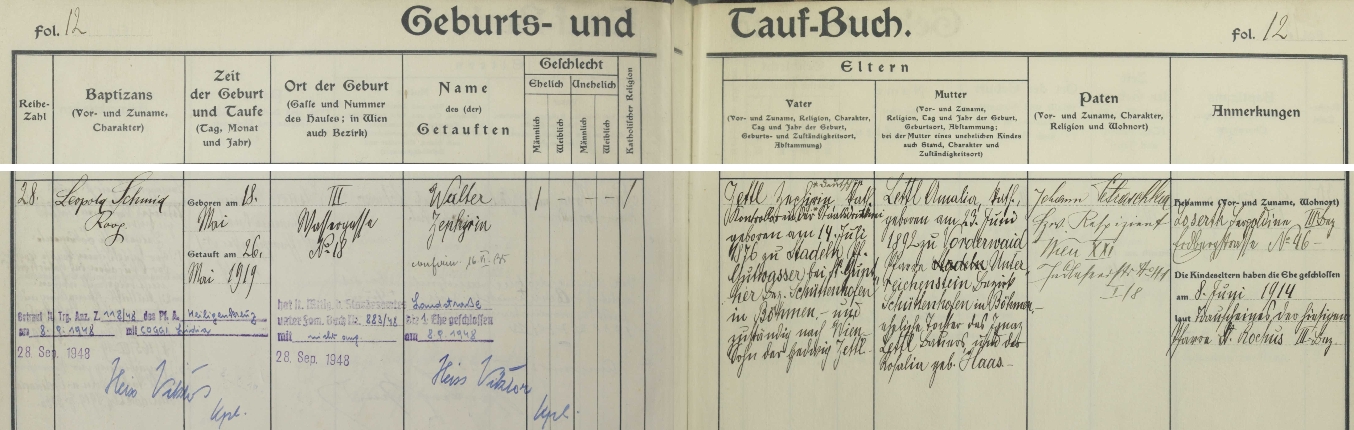 fol. 12
Geburts- und
Tauf-Buch.
fol. 12
Reihe-
Zahl
Baptizans
(Vor- und Zuname,
Charakter)
Zeit
der Geburt
und Taufe
(Tag, Monat
und Jahr)
Ort der Geburt
(Gasse und Nummer
des Hauses; in Wien
auch Bezirk)
Name
des (der)
Getauften
Geschlecht
Ehelich
Unehelich
Männlich
Weiblich
Männlich
Weiblich
Katholischer Religion
Eltern
Vater
(Vor- und Zuname, Religion, Charakter,
Tag und Jahr der Geburt,
Geburts- und Zuständigkeitsort,
Abstammung)
Mutter
(Vor- und Zuname,
Religion, Tag und Jahr der Geburt,
Geburtsort, Abstammung;
bei der Mutter eines unehelichen Kindes
auch Stand, Charakter und
Zuständigkeitsort)
Paten
(Vor- und Zuname, Charakter,
Religion und Wohnort)
Anmerkungen
28.
Leopold Schmid
Koop.
Geboren am 18.
Mai
Getauft am 26.
Mai 1919
III
Wassergasse
No 18
Walter
Zephyrin
1 - - - 1
Zephyrin
kath.
geboren am 14. Juli
1876 zu Stadeln Pf.
Gutwasser bei St. Gün-
ther Bez. Schüttenhofen
in Böhmen - und
zuständig nach Wien
Sohn der Hedwig
Amalia, kath.,
geboren am 23. Juni
1892 zu Vorderwaid
Pfarre Unter-
reichenstein Bezirk
Schüttenhofen in Böhmen,
eheliche Tochter des Ignaz
und der
Rosalia geb. Haas.
Johann
Wien XXI
I/8
Hebamme (Vor- und Zuname, Wohnort)
Leopoldine III Bez
Erdbergstrasse No 96
Die Kindeseltern haben die Ehe geschlossen
am 8. Juni 1914
laut Trauscheines der hiesigen
Pfarre St. Rochus III. Bez
Getraut lt. Trg. Anz. Z. 118/48 des Pf. A. Heiligenkreuz
am 8. 9. 1948 mit COGGI Lidia
28. Sep. 1948
Heiss Viktor
Kpl.
hat lt. Mittlg. d. Standesamtes Landstraße
unter Fam. Buch Nr. 883/48 die 1. Ehe geschlossen
mit nicht ang. am 8. 9. 1948
28. Sep. 1948
Heiss Viktor
Kpl.